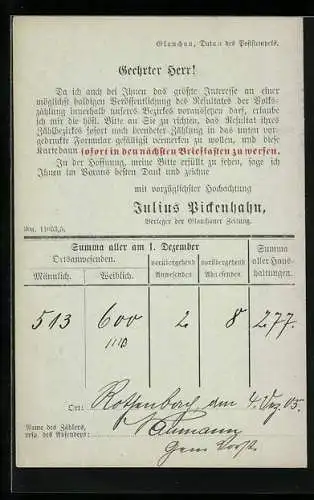 Glauchau, Datum des Poststempels.
Geehrter Herr!
Da ich auch bei Ihnen das größte Interesse an einer
möglichst baldigen Veröffentlichung des Resultates der Volks-
zählung innerhalb unsers Bezirkes voraussetzen darf, erlaube
ich mir die höfl. Bitte an Sie zu richten, das Resultat ihres
Zählbezirkes sofort nach beendeter Zählung in das unten vor-
gedruckte Formular gefälligst vermerken zu wollen, und diese
Karte dann sofort in den nächsten Briefkasten zu werfen.
In der Hoffnung, meine Bitte erfüllt zu sehen, sage ich
Ihnen im Voraus besten Dank und zeichne
mit vorzüglichster Hochachtung
Julius Pickenhahn,
Verleger der Glauchauer Zeitung.
Summa aller am 1. Dezember
Ortsanwesenden.
Männlich. Weiblich. vorübergehend Anwesenden vorübergehend Abwesenden Summa aller Haus- haltungen.
513 600 2 8 277.
1110
Ort: den 4. Dez. 05.
Name des Zählers, Naumann
resp. des Absenders: